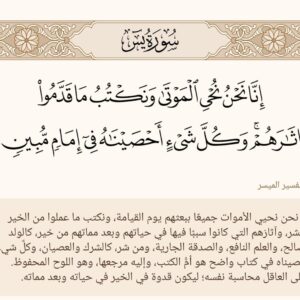 سُورَةُ يسٓ
إِنَّا نَحْنُ نُحْىِ ٱلْمَوْتَىٰ وَنَكْتُبُ مَا قَدَّمُوا۟
اثَـٰرَهُمْ ۚ وَكُلَّ شَىْءٍ أَحْصَيْنَـٰهُ فِىٓ إِمَامٍ مُّبِينٍ
فسير الميسر
نحن نحيي الأموات جميعًا ببعثهم يوم القيامة، ونكتب ما عملوا من الخير
شر، وآثارهم التي كانوا سببًا فيها في حياتهم وبعد مماتهم من خير، كالولد
صالح، والعلم النافع، والصدقة الجارية، ومن شر، كالشرك والعصيان، وكلَّ شيء
صيناه في كتاب واضح هو أمُّ الكتاب، وإليه مرجعها، وهو اللوح المحفوظ.
لى العاقل محاسبة نفسه؛ ليكون قدوة في الخير في حياته وبعد مماته.